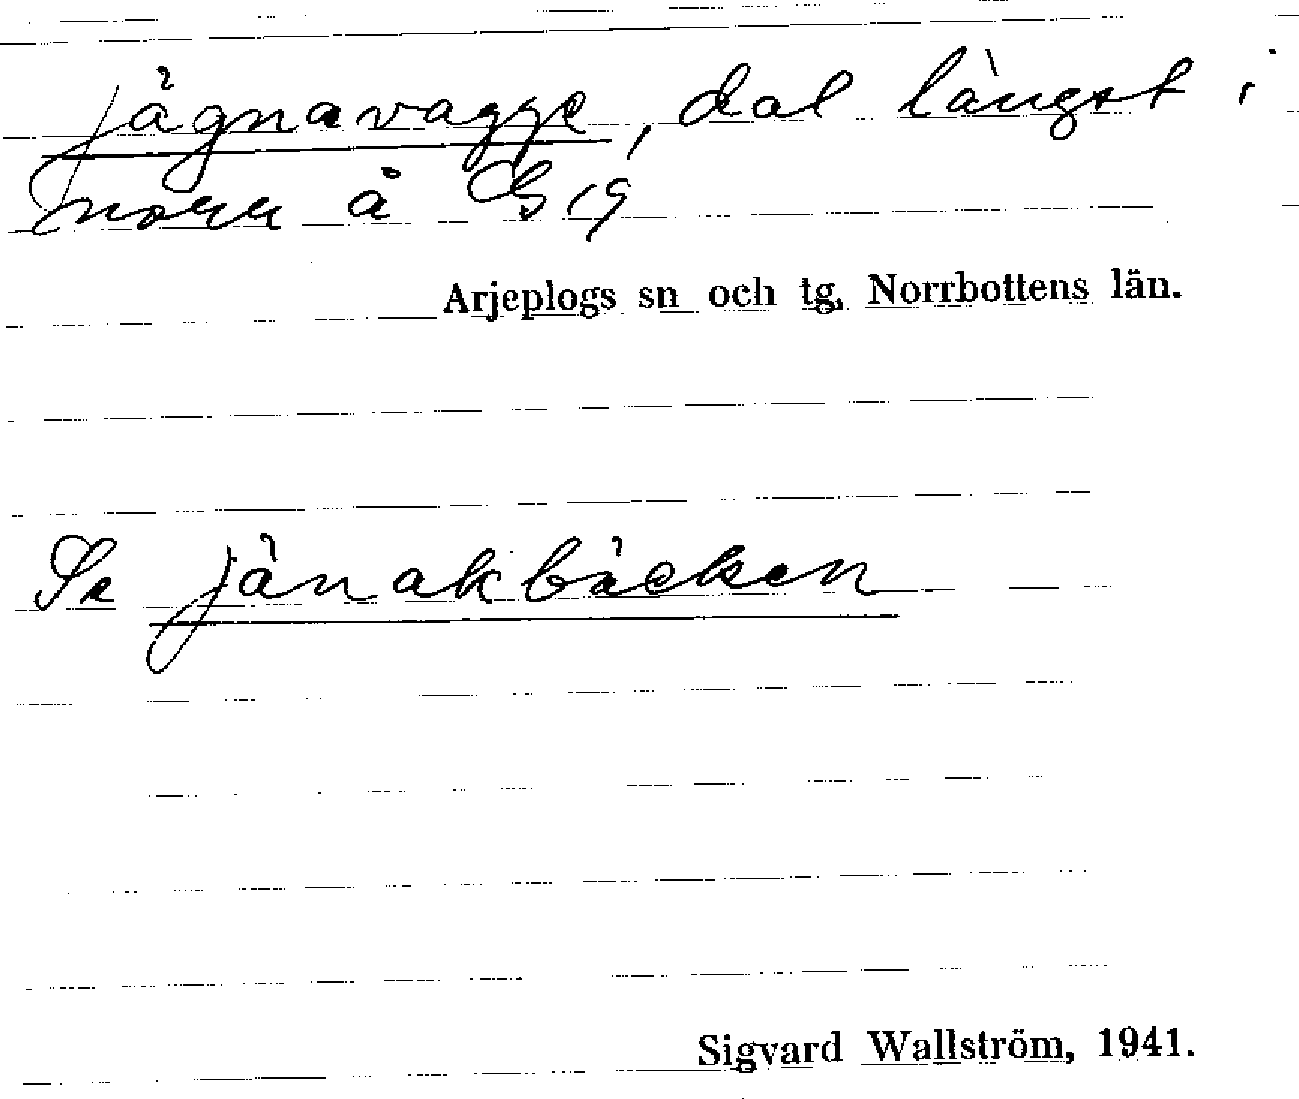 jågnavagge, dal längst i
norr å G 19
Arjeplogs sn och tg, Norrbottens län.
Se jånakbäcken
Sigvard Wallström, 1941.